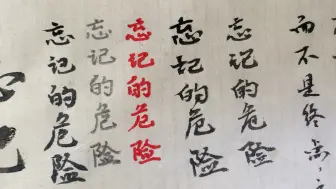 而不是终
忘记的危险
忘记的危险
忘记的危险
忘记的危险
忘记的危险